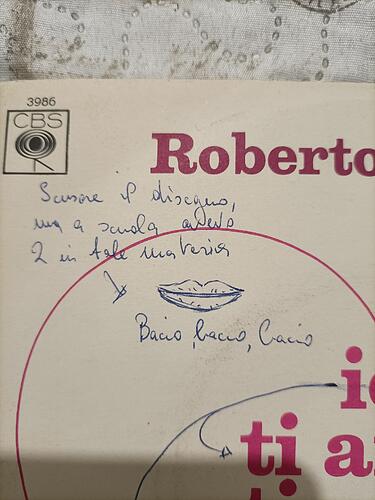 3986
CBS
Roberto
Scusare il disegno,
ma a scuola avevo
2 in tale materia
Bacio, bacio, bacio
ti a